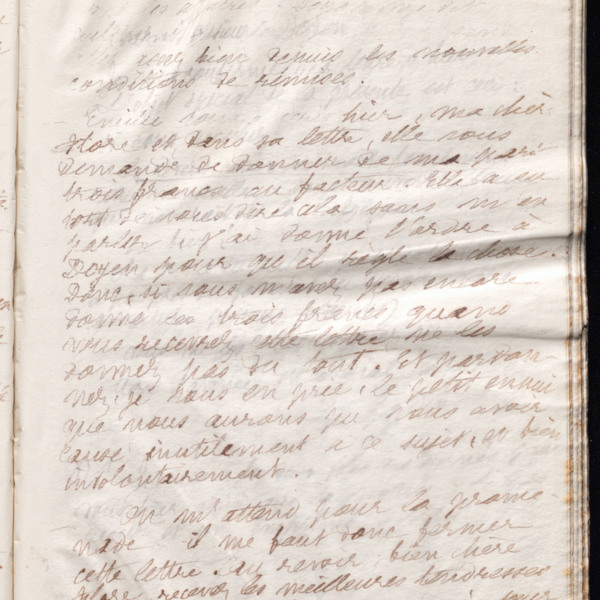 bien depuis les nouvelles
conditions de remises.
hier, ma chère
Flore et dans sa lettre, elle vous
demande de donner de ma part
trois francs au facteur. Elle a eu
tort de vous dire cela sans m'en
parler j'ai donné l'ordre à
Doyen pour qu'il règle la chose.
Donc, si vous n'avez pas encore
donné les trois francs, quand
vous recevrez cette lettre ne les
donnez pas du tout. Et pardon-
nez, je vous en prie, le petit ennui
que nous aurons pu vous avoir
causé inutilement à ce sujet, et bien
involontairement.
On m'attend pour la prome-
nade il me faut donc fermer
cette lettre. Au revoir, bien chère
Flore, recevez les meilleures tendresses